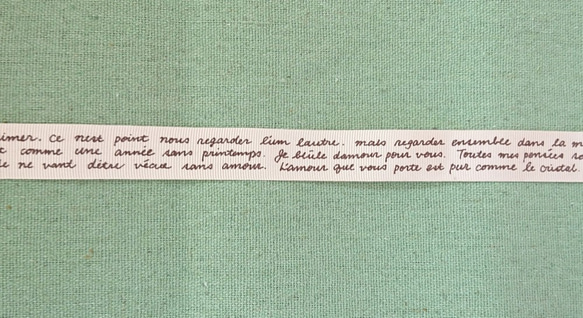 imer. Ce nest point nous regarder l'um lautre. mais regarder ensemble dans la m
t comme une année sans printemps. Je brûle damour pour vous. Toutes mes pensées so
le ne vand dêtre vécue sans amour. L'amour que vous porte est pur comme le cristal.